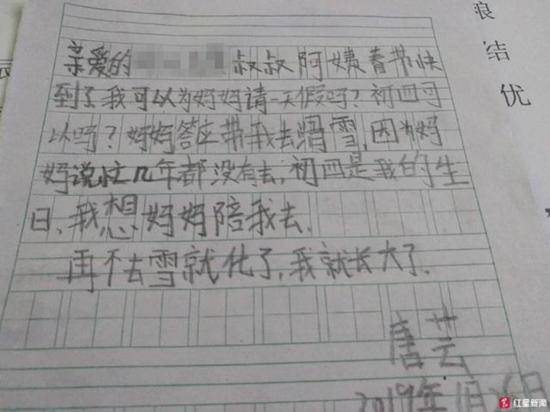 亲爱的
叔叔阿姨春节快
到了我可以为妈妈请一天假吗？初四可
以吗？妈妈答应带我去滑雪，因为妈
妈说忙几年都没有去，初四是我的生
日，我想妈妈陪我去。
再不去雪就化了，我就长大了。
唐芸
2019年1月 日
结
优
红星新闻